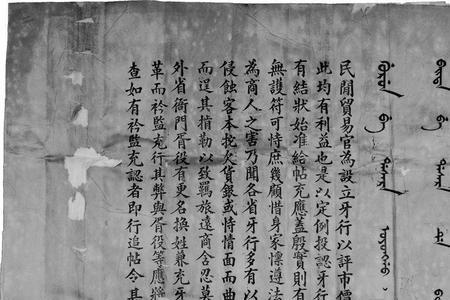 民間貿易官為設立牙行以評市價
此均有利益也是以定例投認牙行
有結狀始准給帖充應蓋殷實則有
無護符可恃庶幾顧惜身家懔遵法
為商人之害乃聞各省牙行多有以
侵蝕客本拖欠貨銀或恃情面而曲
而逞其掯勒以致羈旅遠商含忍莫
外省衙門胥役有更名換姓兼充牙
革而衿監充行其弊與胥役等應將
查如有衿監充認者即行追帖令其